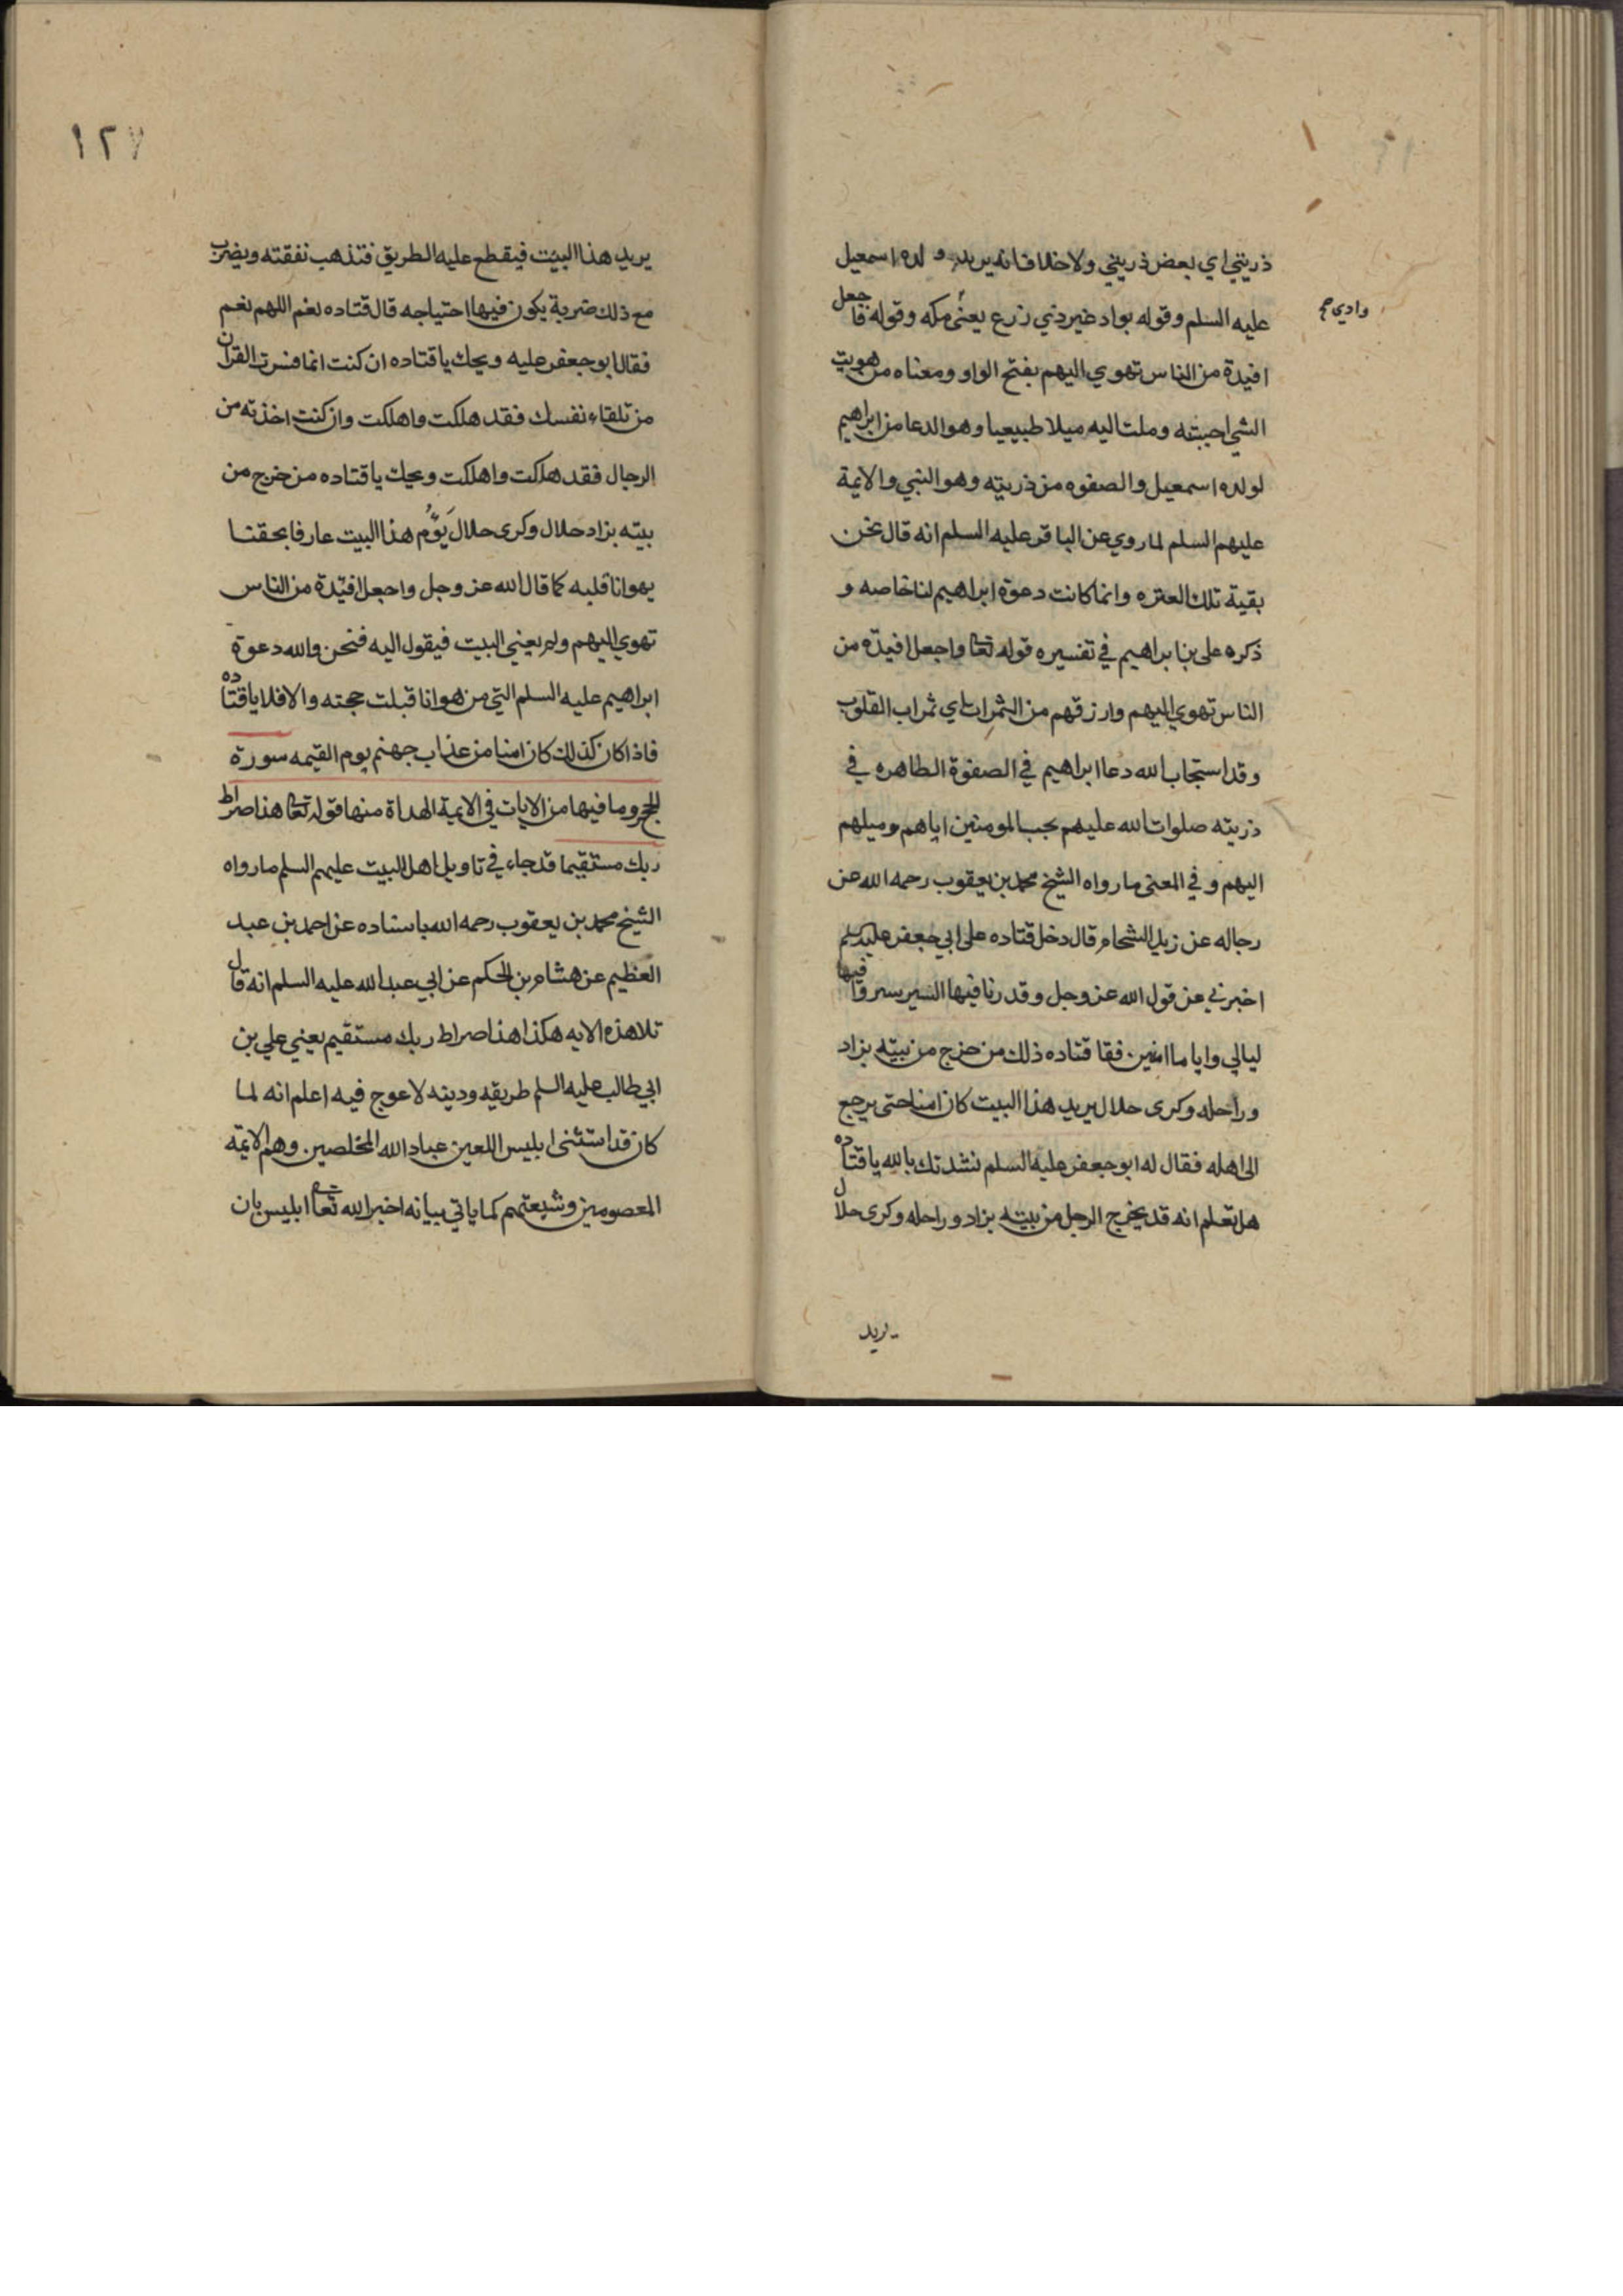 ذريتي اي بعض ذريتي ولا خلاف انه يريد ولده اسمعيل
عليه السلم وقوله بواد غير ذي زرع يعنى مكه وقوله فاجعل
وادي
افيدة من الناس تهوي اليهم بفتح الواو ومعناه من هويت
الشي احببته وملت اليه ميلا طبيعيا وهو الدعا من ابراهيم
لولده اسمعيل والصفوه من ذريته وهو النبي والايمة
عليهم السلم لما روي عن الباقر عليه السلم انه قال نحن
بقية تلك العتره وانما كانت دعوة ابراهيم لنا خاصه و
ذكره على بن ابراهيم في تفسيره قوله تعا واجعل افيدة من
الناس تهوي اليهم وارزقهم من الثمرات اي ثمراب القلوب
وقد استجاب الله دعا ابراهيم في الصفوة الطاهره في
ذريته صلوات الله عليهم بحب المومنين اياهم وميلهم
اليهم و في المعنى ما رواه الشيخ محمد بن يعقوب رحمه الله عن
رجاله عن زيد الشحام قال دخل قتاده على ابي جعفر عليه السلم
اخبرني عن قول الله عز وجل وقدرنا فيها السير سيروا فيها
ليالي واياما امنين فقا قتاده ذلك من خرج من بيته بزاد
وراحله وكرى حلال يريد هذا البيت كان امنا حتى يرجع
الى اهله فقال له ابو جعفر عليه السلم نشدتك بالله يا قتاده
هل تعلم انه قد يخرج الرجل من بيته بزاد وراحله وكرى حلال
يريد
١٢٧
يريد هذا البيت فيقطع عليه الطريق فتذهب نفقته ويضرب
مع ذلك ضربة يكون فيها احتياجه قال قتاده نعم اللهم نعم
فقال ابو جعفر عليه ويحك يا قتاده ان كنت انما فسرت القران
من تلقاء نفسك فقد هلكت واهلكت وان كنت اخذته من
الرجال فقد هلكت واهلكت ويحك يا قتاده من خرج من
بيته بزاد حلال وكرى حلال يَؤُم هذا البيت عارفا بحقنا
يهوانا قلبه كما قال الله عز وجل واجعل افئدة من الناس
تهوي اليهم ولم يعني البيت فيقول اليه فنحن والله دعوة
ابراهيم عليه السلم التي من هوانا قبلت حجته والا فلا يا قتاده
فاذا كان كذلك كان امنا من عذاب جهنم يوم القيمه سورة
الحجر وما فيها من الايات في الايمة الهداة منها قوله تعا هذا صراط
ربك مستقيما قد جاء في تاويل اهل البيت عليهم السلم ما رواه
الشيخ محمد بن يعقوب رحمه الله باسناده عن احمد بن عبد
العظيم عن هشام بن الحكم عن ابي عبد الله عليه السلم انه قال
تلا هذه الايه هكذا هذا صراط ربك مستقيم يعني علي بن
ابي طالب عليه السلم طريقه ودينه لا عوج فيه اعلم انه لما
كان قد استثنى ابليس اللعين عباد الله المخلصين وهم الايمة
المعصومين وشيعتهم كما ياتي بيانه اخبر الله تعا ابليس بان